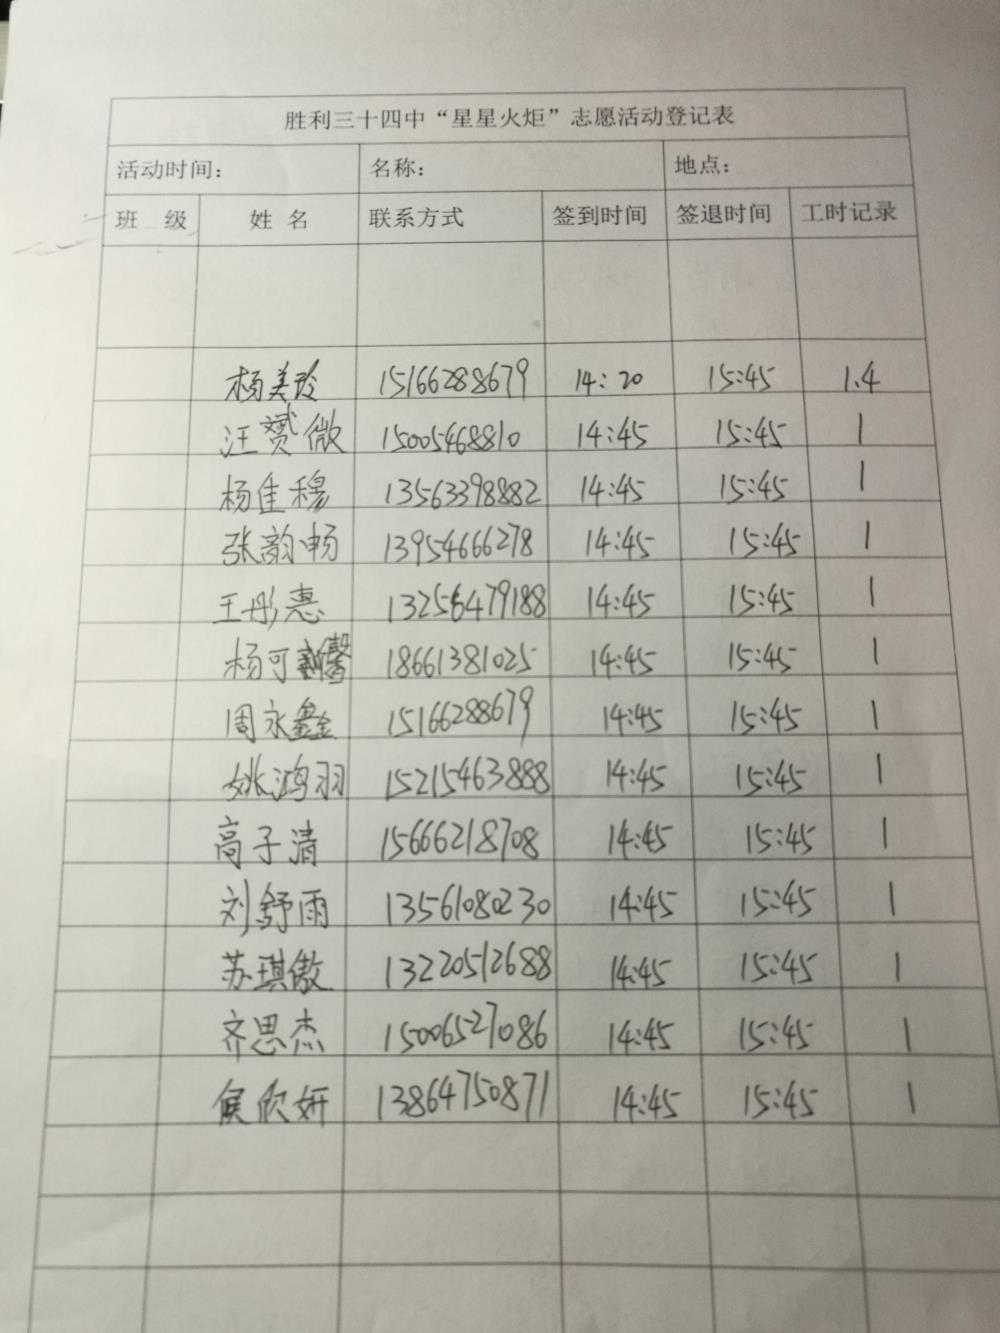 胜利三十四中“星星火炬”志愿活动登记表
活动时间： 名称： 地点：
班 级 姓 名 联系方式 签到时间 签退时间 工时记录
杨美玲 15166288679 14:20 15:45 1.4
汪赟微 15005468810 14:45 15:45 1
杨佳穆 13563398882 14:45 15:45 1
张韵畅 13954666278 14:45 15:45 1
王彤惠 13256479188 14:45 15:45 1
杨可馨 18661381025 14:45 15:45 1
周永鑫 15166288679 14:45 15:45 1
姚鸿羽 15215463888 14:45 15:45 1
高子清 15666218708 14:45 15:45 1
刘舒雨 13561080230 14:45 15:45 1
苏琪傲 13220512688 14:45 15:45 1
齐思杰 15006527086 14:45 15:45 1
侯欣妍 13864750871 14:45 15:45 1